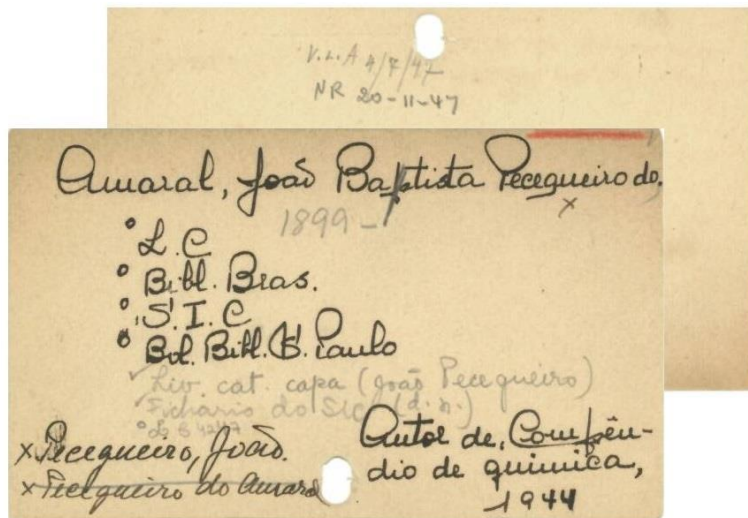 V.L.A 4/7/47
NR 20-11-47
Amaral, João Baptista Pecegueiro do,
x
1899-
° L.C
° Bibl. Bras.
° S.I.C
° Bol. Bibl. S. Paulo
✓ Liv. cat. capa (João Pecegueiro)
✓ Fichario do SIC (d.n.)
x Pecegueiro, João.
x Pecegueiro do Amaral
Autor de, Compên-
dio de quimica,
1944